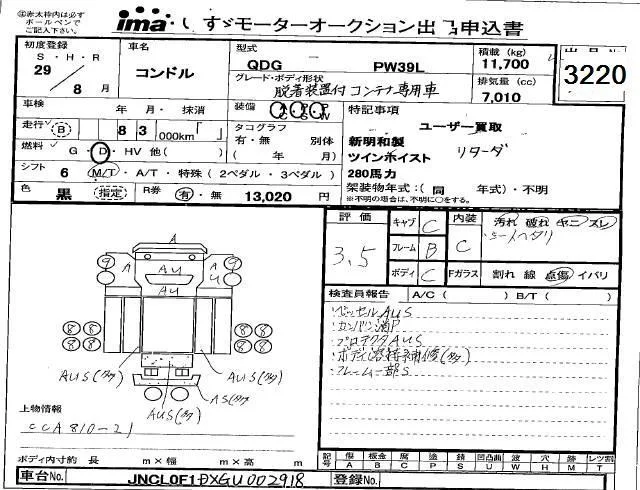 ㊟赤太枠内は必ず
ボールペンで
ご記入下さい。
ima いすゞモーターオークション出品申込書
初度登録
S・H・R
29
8 月
車名
コンドル
型式
QDG PW39L
グレード・ボディ形状
脱着装置付 コンテナ専用車
積載 (kg)
11,700
排気量 (cc)
7,010
3220
車検 年・月・抹消
走行 B 8 3 000km
燃料 G・D・HV 他( )
シフト 6 M/T・A/T・特殊 (2ペダル・3ペダル)
色 黒 指定
R券 有・無 13,020 円
装備 AC PS PW
タコグラフ
有・無 別体
( 年 月)
特記事項
ユーザー買取
新明和製
ツインホイスト リターダ
280馬力
架装物年式:(同 年式)・不明
※不明な場合は、不明に○をする。
評価
3.5
キャブ C
フレーム B
ボディ C
内装 C
汚れ 破れ ヤニ ズレ
シートヘタリ
Fガラス 割れ 線 点傷 イバリ
検査員報告 A/C ( ) B/T ( )
・ベッセルAUS
・カンバン消P
・プロテクタAUS
・ボディ溶接補修(多)
・フレーム一部S
A
9 A AU A 9
U U
A
8 8 8 8
8 8 8 8
AUS(多) AUS(多)
AS(多)
AUS(多)
上物情報
CCA810-21
ボディ内寸約 長 m×幅 m×高 m
記号 傷 板金 腐 塗 錆 凹凸曲 波 穴 跡 レツ割
A B C P S U W H M T
車台No. JNCL0F1DXGU002918
登録No.